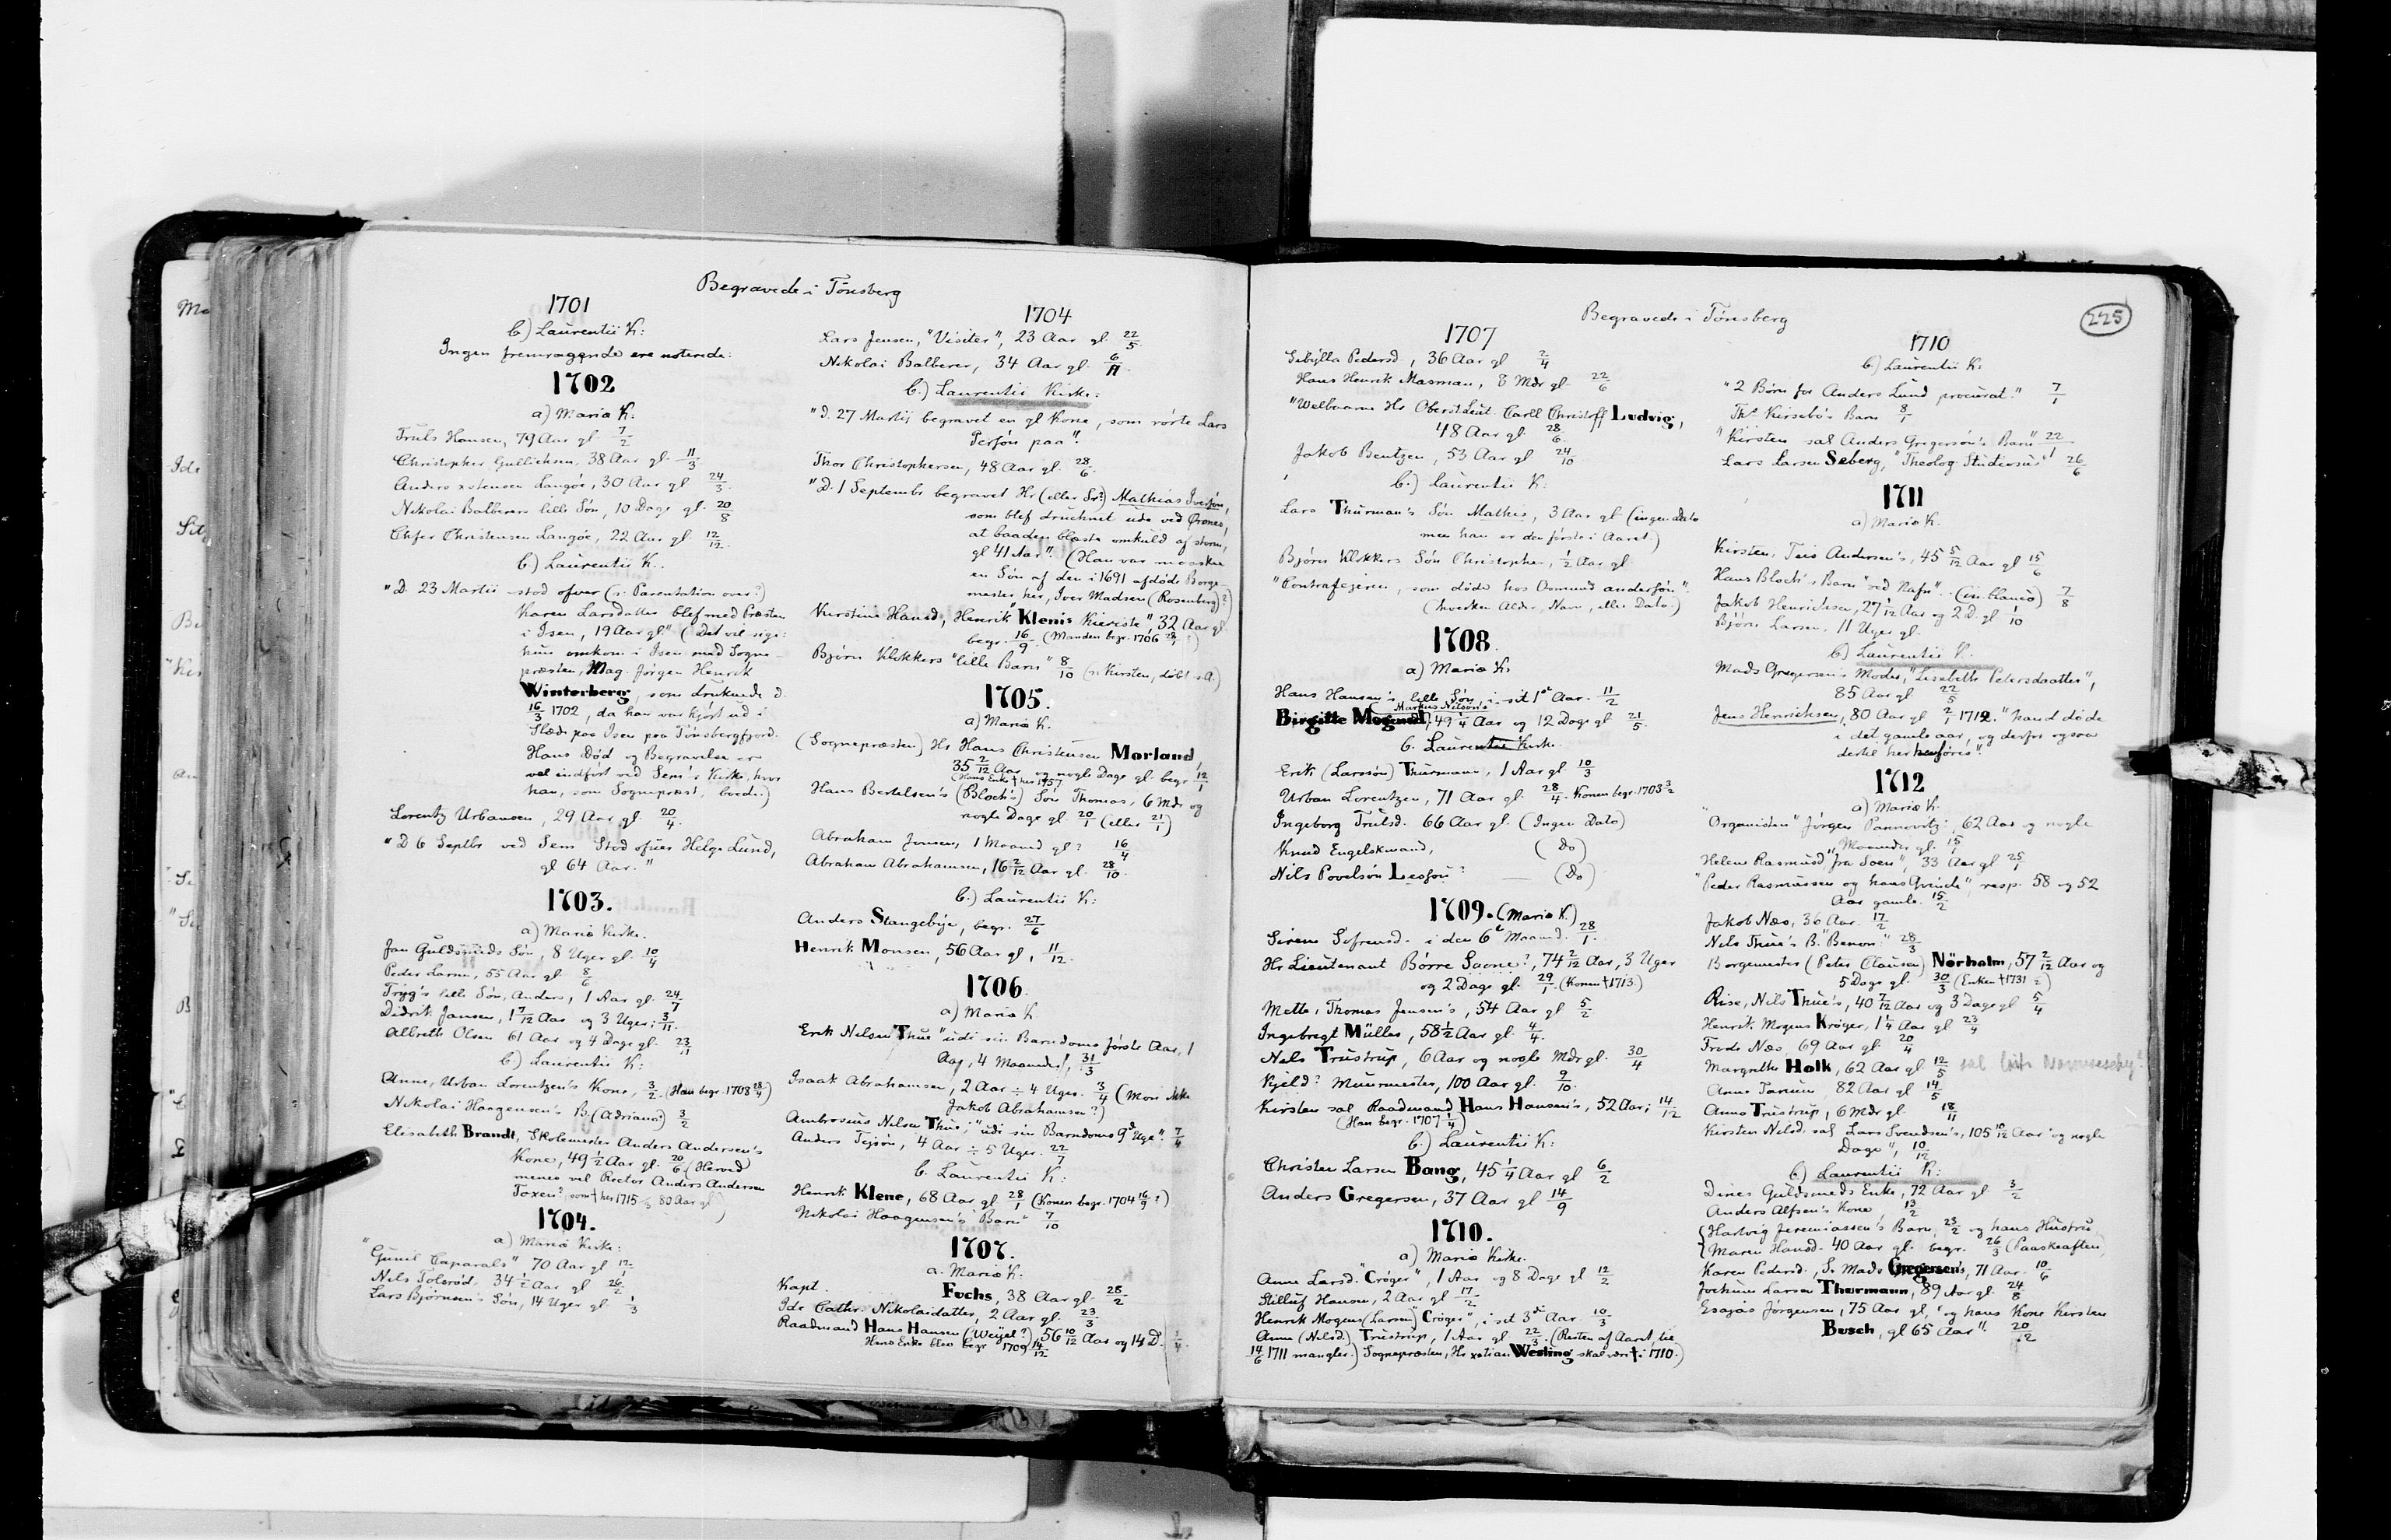 Begravede i Tönsberg
1701
b.) Laurentii K:
Ingen fremragende ere noterede:
1702
a) Mariæ K:
Truls Hansen, 79 Aar gl 7/2
Christopher Gullichsen, 38 Aar gl. 11/3
Anders xstensen Langöe, 30 Aar gl 24/3.
Nikolai Balberers lille Sön, 10 Dage gl. 20/8
Chfer Christensen Langöe, 22 Aar gl 12/12.
b.) Laurentii K..
"D. 23 Martii stod ofver (ɔ: Parentation over?)
Karen Larsdatter blef med Præsten
i Isen, 19 Aar gl." (Det vil sige:
hun omkom i Isen med Sogne-
præsten, Mag. Jörgen Henrik
Winterberg, som druknede d.
16/3 1702, da han var kjört ud i
Slæde paa Isen paa Tönsbergfjord.
Hans Död og Begravelse er
vel indfört ved Sem's Kirke, hvor
han, som Sognepræst, boede.)
Lorentz Urbansen, 29 Aar gl. 20/4.
"D 6 Septbr ved Sem Stod ofver Helge Lund,
gl 64 Aar."
1703.
a) Mariæ Kirke.
Jan Guldsmeds Sön, 8 Uger gl. 10/4
Peder Larsen, 55 Aar gl. 8/6
Tryg's lille Sön, Anders, 1 Aar gl. 24/7
Didrik Jansen, 1 7/12 Aar og 3 Uger; 3/11.
Albreth Olsen 61 Aar og 4 Dage gl. 23/11
b.) Laurentii K:
Anne, Urban Lorentzen's Kone, 3/2. (Han begr. 1708 28/4)
Nikolai Haagensen's B. (Adriana) 3/2
Elisabeth Brandt, Skolemester Anders Andersen's
Kone, 49 1/2 Aar gl. 20/6 (Herved
menes vel Rector Anders Andersen
Toxen? som † her 1715 80 Aar gl)
1704.
a) Mariæ Kirke:
"Gunil Caparals" 70 Aar gl 12/1
Nils Tolsröd, 34 1/2 Aar gl 26/2
Lars Björnsen's Sön, 14 Uger gl. 1/3
1704
Lars Jensen, "Visiter", 23 Aar gl. 22/5.
Nikolai Balberer, 34 Aar gl. 6/11.
b.) Laurentii Kirke:
"D. 27 Martij begravet en gl Kone, som rörte Lars
Persön paa".
Thor Christophersen, 48 Aar gl. 28/6.
"D. 1 Septembr begravet Hr (eller Sr?) Mathias Iversön,
som blef druchnet ude ved Örsnes,
at baaden blæste omkuld af storm,
gl 41 Aar". (Han var maaskee
en Sön af den i 1691 afdöde Borge-
mester her, Iver Madsen (Rosenberg)?)
Kirstine Hansd, Henrik "Klenis Kieriste", 32 Aar gl.
begr. 16/9 (Manden begr. 1706 28/1 ?)
Björn Klokkers "lille Barn" 8/10 (ɔ: Kirsten, döbt s.A.)
1705.
a) Mariæ K.
(Sognepræsten) Hr Hans Christensen Morland,
35 2/12 Aar og nogle Dage gl. begr 12/1
(Hans Enke † her 1757
Hans Bertelsen's (Bloch's) Sön Thomas, 6 Mdr og
nogle Dage gl. 20/1 (eller 21/1)
Abraham Jonsen, 1 Maaned gl? 16/4
Abraham Abrahamsen, 16 2/12 Aar gl. 28/10.
b.) Laurentii K:
Anders Stangebye, begr. 27/6
Henrik Monsen, 56 Aar gl, 11/12.
1706
a) Mariæ K.
Erik Nilsen Thue "udi sin Barndoms förste Aar, 1
Aar, 4 Maaneder", 31/3
Isaak Abrahamsen, 2 Aar ÷ 4 Uger. 3/4 (Mon ikke
Jakob Abrahamsen?)
Ambrosius Nilsen Thue; "udi sin Barndoms 9de Uge". 7/4
Anders Tejsön, 4 Aar ÷ 5 Uger. 22/7
b. Laurentii K:
Henrik Klene, 68 Aar gl. 28/1 (Konen begr. 1704 16/9 ?)
Nikolai Haagensen's Barn 7/10
1707.
a. Mariæ K:
Kapt. Fuchs, 38 Aar gl. 28/2
Ide Cathr. Nikolaidatter, 2 Aar gl. 23/3
Raadmand Hans Hansen (Weijel?) 56 10/12 Aar og 14 D. 1/4.
Hans Enke blev begr 1709 14/12
Begravede i Tönsberg
225
1707
Sibÿlla Pedersd, 36 Aar gl 2/4
Hans Henrik Masman, 8 Mdr gl. 22/6
"Welbaarne Hr OberstLieut. Carll Christoff Ludvig,
48 Aar gl. 28/6.
Jakob Bentzen, 53 Aar gl 24/10
b.) Laurentii K:
Lars Thurman's Sön Mathis, 3 Aar gl (ingen Dato
men han er den förste i Aaret.)
Björn Klokkers Sön Christopher, 1/2 Aar gl
"Contrafejeren, som döde hos Osmund andersön".
(hverken Alder, Navn, eller Dato.)
1708.
a) Mariæ K.
Hans Hansen's lille Sön, i sit 1ste Aar. 11/2
Markus Nilsön's
Birgitte Mogensd, 49 1/4 Aar og 12 Dage gl 21/5.
b. Laurentii Kirke
Erik (Larssön) Thurmann, 1 Aar gl 10/3
Urban Lorentzen, 71 Aar gl. 28/4. Konen begr. 1703 3/2
Ingeborg Trulsd. 66 Aar gl. (Ingen Dato)
Knud Engelskmand, (Do)
Nils Povelsön Lessön? (Do)
1709. (Mariæ K.)
Sirene Sofrensd. i den 6te Maaned. 28/1.
Hr Lieutenant Börre Saone?, 74 2/12 Aar, 3 Uger
og 2 Dage gl. 29/1. (Konen † 1713.)
Mette, Thomas Jensen's, 54 Aar gl 5/2
Ingebregt Müller, 58 1/2 Aar gl. 4/4.
Nils Trustrup, 6 Aar og nogle Mdr gl. 30/4
Kjeld? Muurmester, 100 Aar gl. 9/10.
Kirsten sal Raadmand Hans Hansen's, 52 Aar; 14/12
(Han begr. 1707 1/4)
b.) Laurentii K:
Christen Larsen Bang, 45 1/4 Aar gl 6/2
Anders Gregersen, 37 Aar gl 14/9
1710.
a) Mariæ Kirke.
Anne Larsd. "Cröger", 1 Aar og 8 Dage gl 12/2
Stilluf Hansen, 2 Aar gl 17/2
Henrik Mogens (Larsen) "Cröger", i sit 3de Aar. 10/3
Anne (Nilsd) Trustrup, 1 Aar gl 22/3. (Resten af Aaret, til
14/6 1711 mangler.) Sognepræsten, Hr xstian Wesling skal være † i 1710.)
1710
b.) Laurentii K:
"2 Börn for Anders Lund procurat." 7/1
Ths Kirsebö's Barn 8/1
"Kirsten sal Anders Gregersön's Barn" 22/1
Lars Larsen Seberg, "Theolog. Studiosus" 26/6
1711
a) Mariæ K.
Kirsten, Teis Andersen's, 45 5/12 Aar gl 15/6
Hans Bloch's Barn "ved Nafn".. (in blanco) 7/8
Jakob Henrichsen, 27 1/12 Aar og 2 D. gl 1/10
Björn Larsen, 11 Uger gl.
b) Laurentii K.
Mads Gregersen's Moder, "Lisabeth Petersdaatter",
85 Aar gl 22/5
Jens Henrichsen, 80 Aar gl 2/1 1712. "hand döde
i det gamle aar, og derfor ogsaa
dertil her henföres".
1712
a) Mariæ K.
"Organisten" Jörgen Pannovitz, 62 Aar og nogle
Maaneder gl. 15/1
Helene Rasmusd "fra Soen", 33 Aar gl 25/1
"Peder Rasmussen og hans Qvinde", resp. 58 og 52
Aar gamle. 15/2
Jakob Næs, 36 Aar. 17/2
Nils Thue's B. "Benon" 28/3
Borgemester (Peter Clausen) Nörholm, 57 2/12 Aar og
5 Dage gl. 30/3 (Enken † 1731 ?)
Rise, Nils Thue's, 40 7/12 Aar og 3 Dage gl 5/4
Henrik Mogens Kröger, 1 1/4 Aar gl 23/4
Trode Næs, 69 Aar gl. 20/4
Margrethe Holk, 62 Aar gl 12/5 sal
Anne Tarium, 82 Aar gl 14/5
Anne Trustrup, 6 Mdr gl 18/11
Kirsten Nilsd, sal Lars Svendsen's, 105 10/12 Aar "og nogle
Dage", 10/12
b) Laurentii K:
Dines Guldsmeds Enke, 72 Aar gl. 3/2
Anders Alfsen's Kone, 13/2
(Hartvig Jeremiassen's Barn, 23/2 og hans Hustru
(Maren Hansd. 40 Aar gl. begr. 26/3 (Paaskeaften)
Karen Pedersd, Sr Mads Gregersen's, 71 Aar. 10/6
Jochum Larsen Thurmann, 89 Aar gl. 24/8
Esajas Jörgensen, 75 Aar gl, "og hans Kone Kirsten
Busch, gl 65 Aar". 20/12